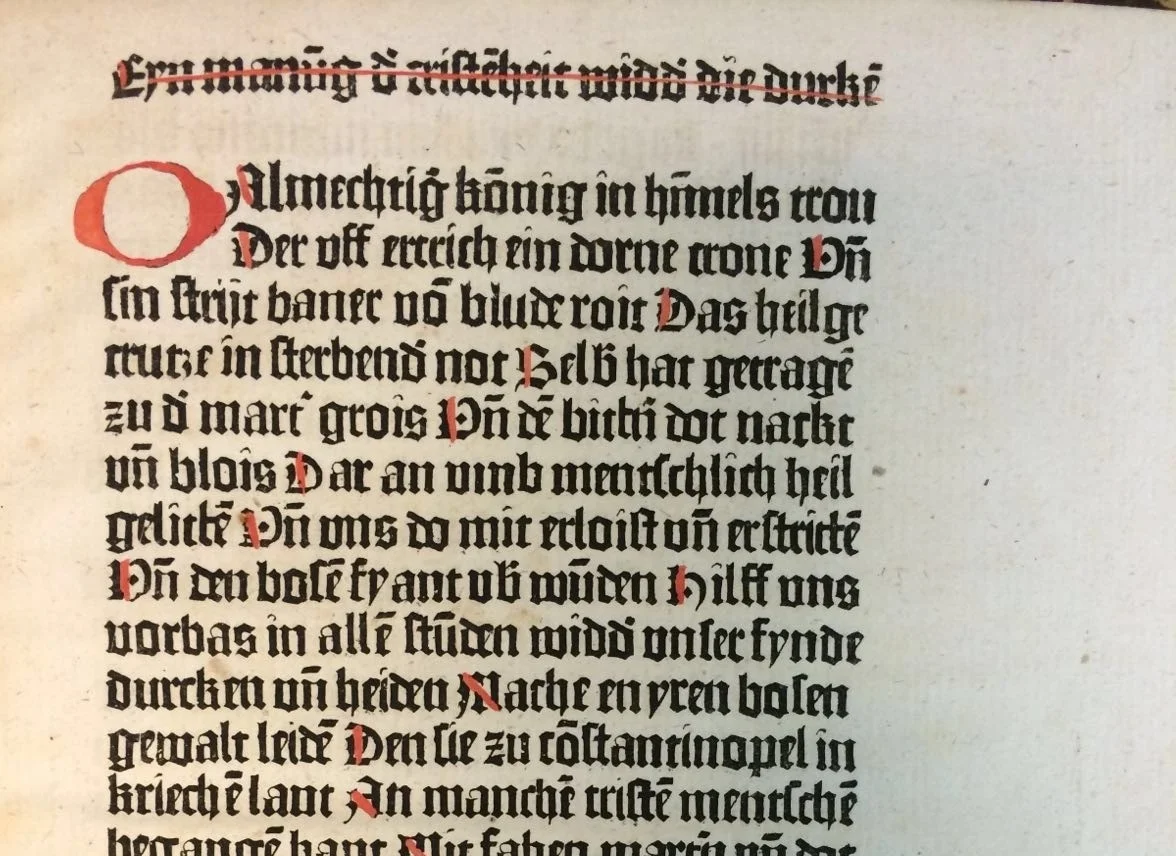 Eyn manũg d' cristẽheit widd' die durkẽ
O Almechtig' kõnig in hĩmels tron
Der uff ertrich ein dorne crone Vñ
sin strijt baner võ blude roit Das heilge
crutze in sterbend' not Selb' hat getragẽ
zu d' mart' grois Vñ dẽ bitt'n dot nackt
vñ blois Dar an vmb mentschlich heil
gelittẽ Vñ vns do mit erloist vñ erstrittẽ
Vñ den bosẽ fyant vb' wũden Hilff vns
vorbas in allẽ stũden widd' vnser fynde
durcken vñ heiden Mache en yren bosen
gewalt leidẽ Den sie zu cõstantinopel in
kriechẽ lant An manchẽ cristẽ mentschẽ
begangẽ hant Mit fahen martũ vñ dot